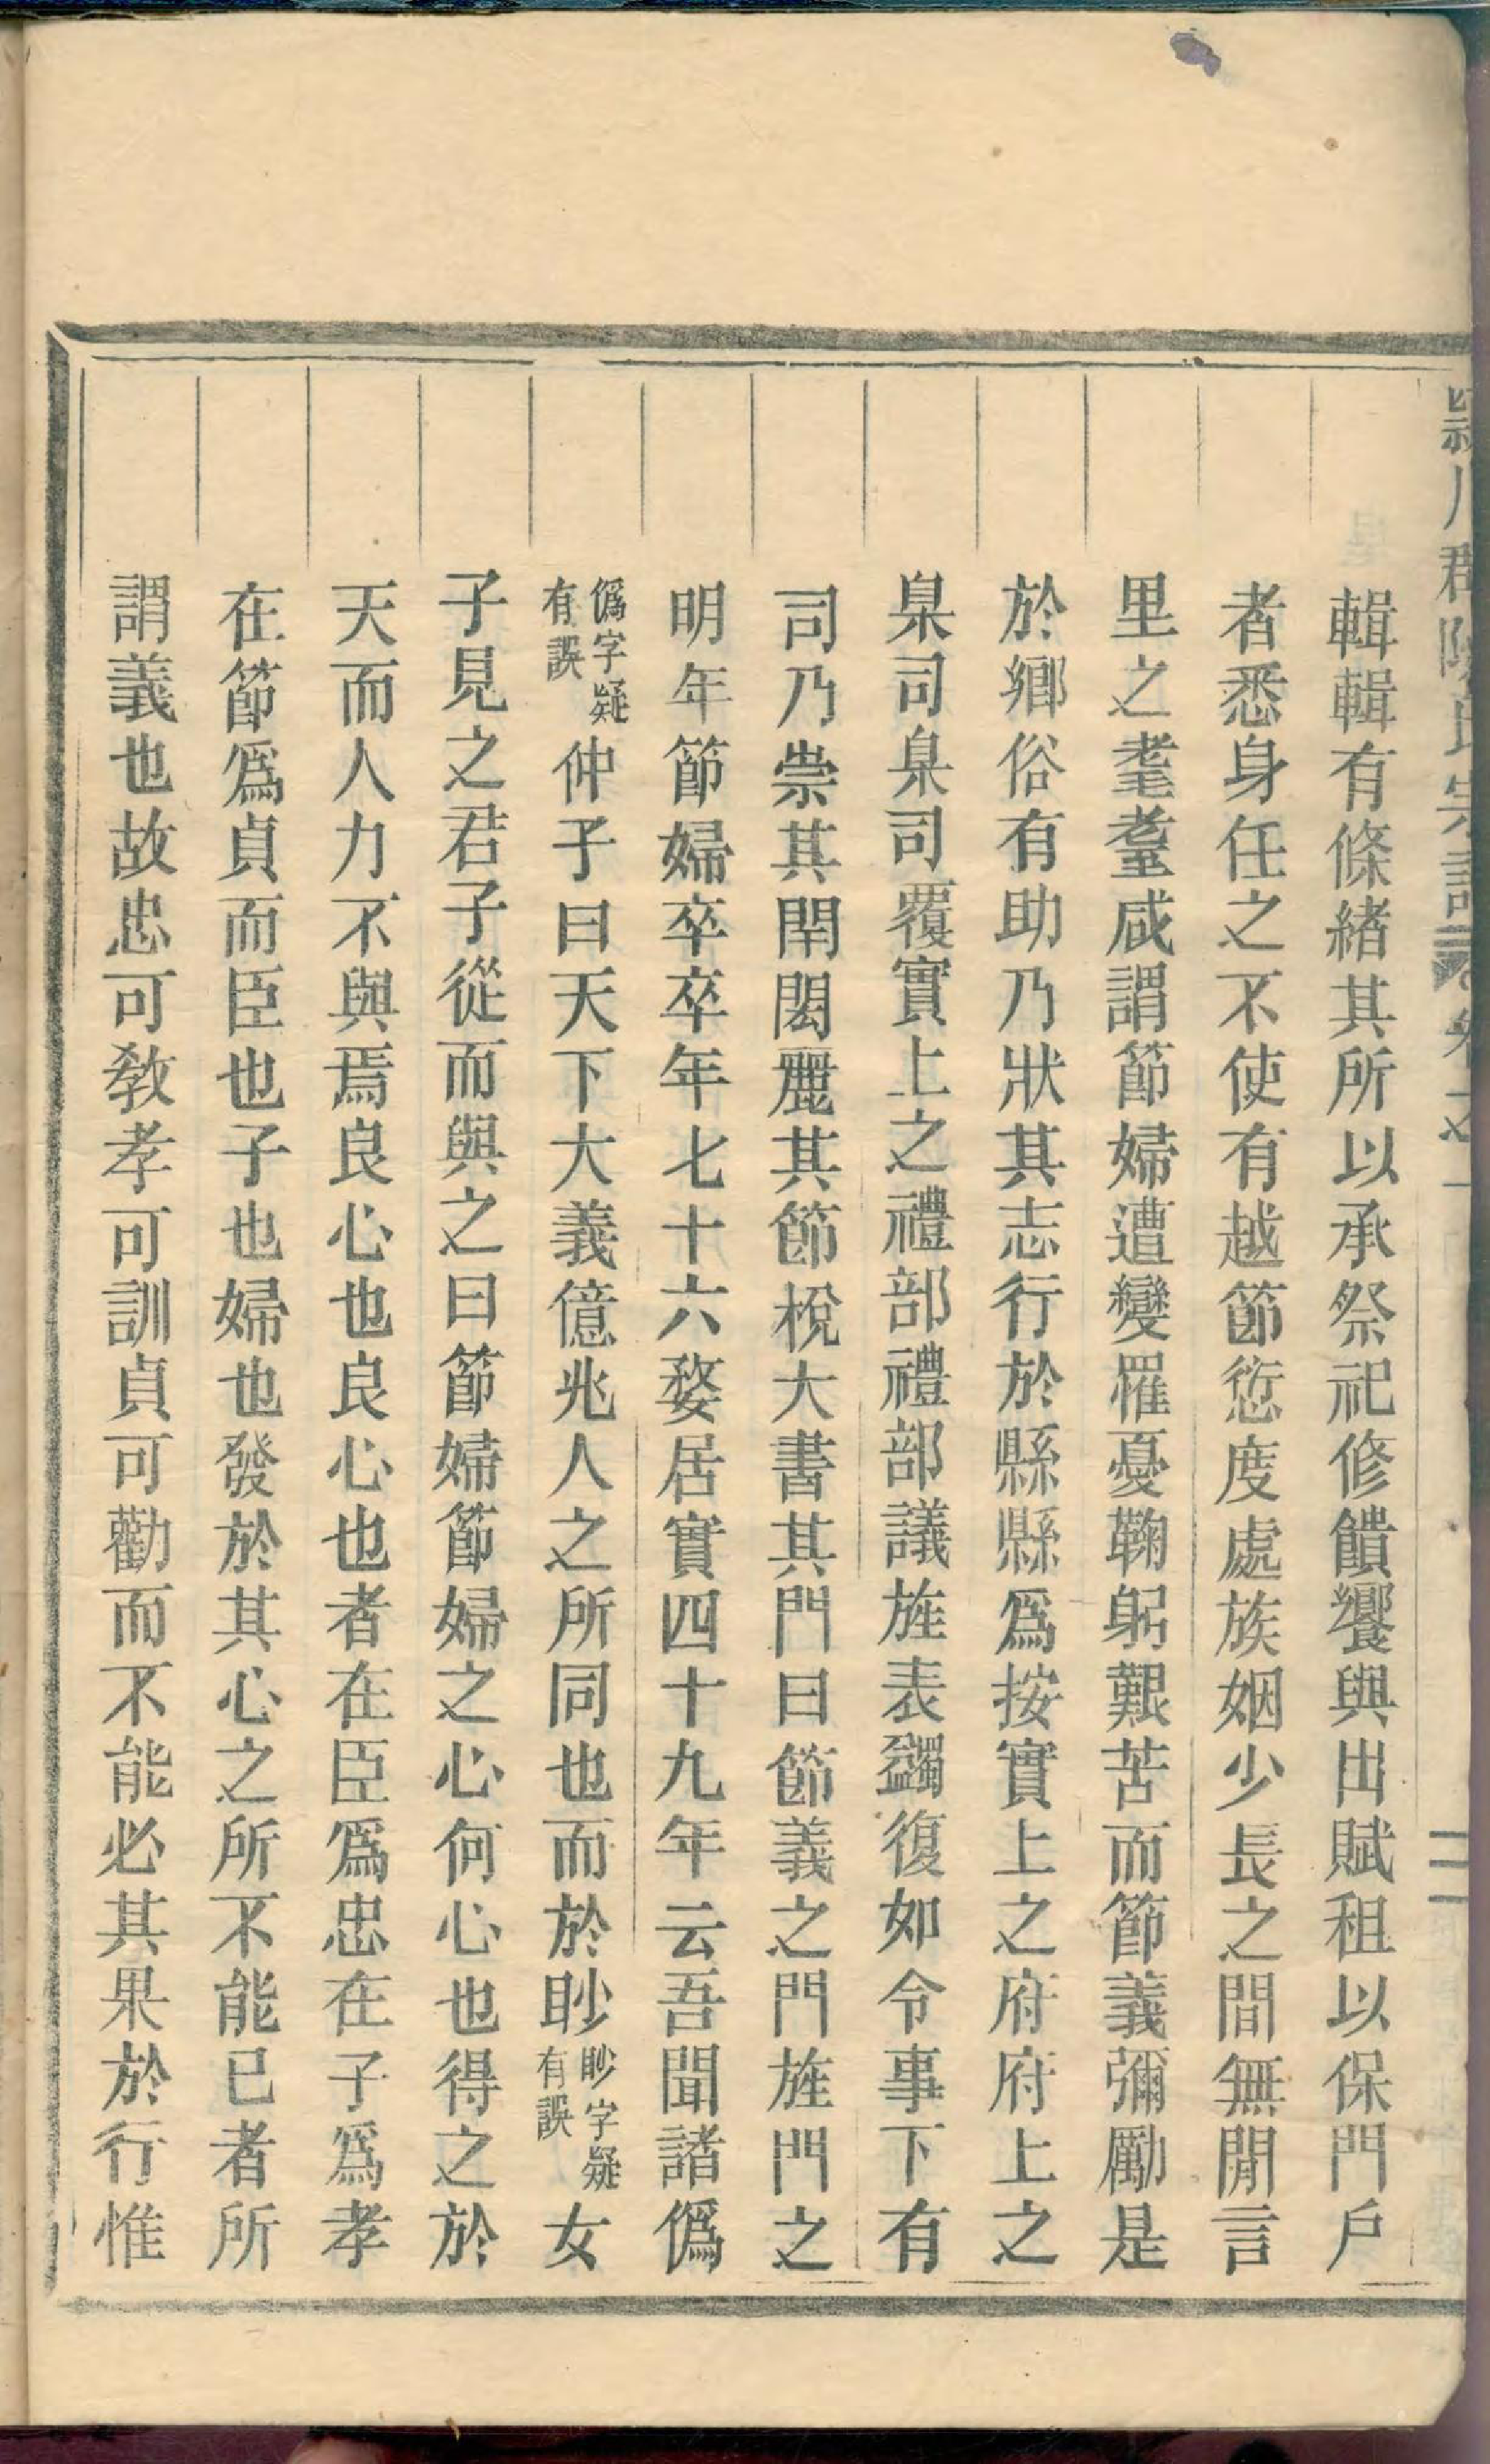 潁川郡陳氏宗譜 卷之一 二
輯輯有條緒其所以承祭祀修饋饗與出賦租以保門戶
者悉身任之不使有越節愆度處族姻少長之間無閒言
里之耄耋咸謂節婦遭變罹憂鞠躬艱苦而節義彌勵是
於鄉俗有助乃狀其志行於縣縣爲按實上之府府上之
臬司臬司覆實上之禮部禮部議旌表蠲復如令事下有
司乃崇其閈閎麗其節梲大書其門曰節義之門旌門之
明年節婦卒卒年七十六婺居實四十九年云吾聞諸僞
僞字疑有誤仲子曰天下大義億兆人之所同也而於眇眇字疑有誤女
子見之君子從而與之曰節婦節婦之心何心也得之於
天而人力不與焉良心也良心也者在臣爲忠在子爲孝
在節爲貞而臣也子也婦也發於其心之所不能已者所
謂義也故忠可敎孝可訓貞可勸而不能必其果於行惟